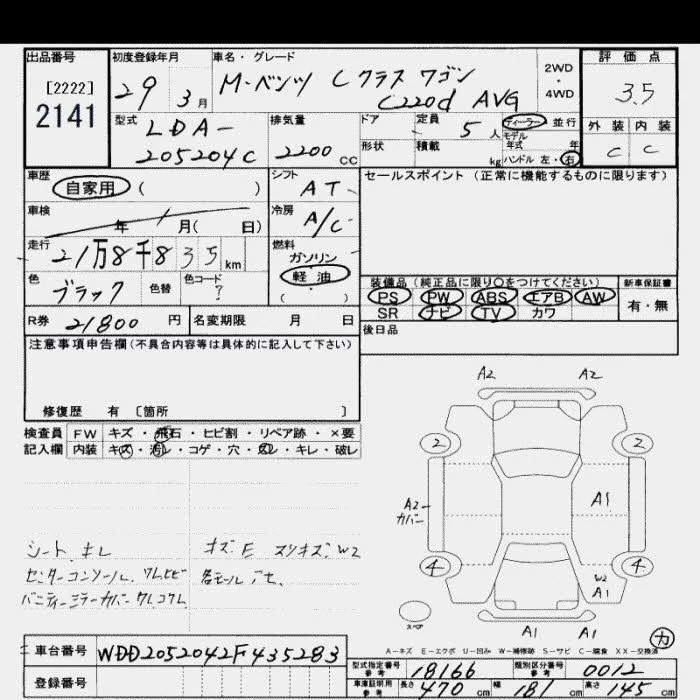 出品番号 初度登録年月 車名・グレード 2WD・4WD 評価点
[2222]
2141
29 3月 M・ベンツ Cクラス ワゴン
C220d AVG
3.5
型式 排気量 ドア 定員 5人 ディーラー 並行
モデル年式 年
外装 内装
LDA-
205204C 2200cc
形状 積載 kg ハンドル 左・右
C C
車歴 自家用 ( ) シフト AT
セールスポイント (正常に機能するものに限ります)
車検 年 月( 日) 冷房 A/C
走行 21万8千835km 燃料 ガソリン・軽油 ( )
色 ブラック 色替 色コード ?
装備品(純正品に限り○をつけてください) 新車保証書
PS PW ABS エアB AW 有・無
SR ナビ TV カワ
R券 21800円 名変期限 月 日 後日品
注意事項申告欄(不具合内容等は具体的に記入して下さい)
修復歴 有 〔箇所 〕
検査員記入欄
FW キズ・飛石・ヒビ割・リペア跡・×要
内装 キズ・汚レ・コゲ・穴・・キレ・破レ
A2 A2
2 2
A2
カバー
A1
4 4
W2
A1
スペア
A1 A1
カ
シート キレ
センターコンソール ワレヒビ
バニティーミラーカバー
キズ、E スリキズ、W2
各モール
A-キズ E-エクボ U-凹み W-補修跡 S-サビ C-腐食 XX-交換済
車台番号 WDD2052042F435283
登録番号
型式指定番号 参考 18166 類別区分番号 参考 0012
車庫証明用 参考 長さ 470cm 幅 181cm 高さ 145cm